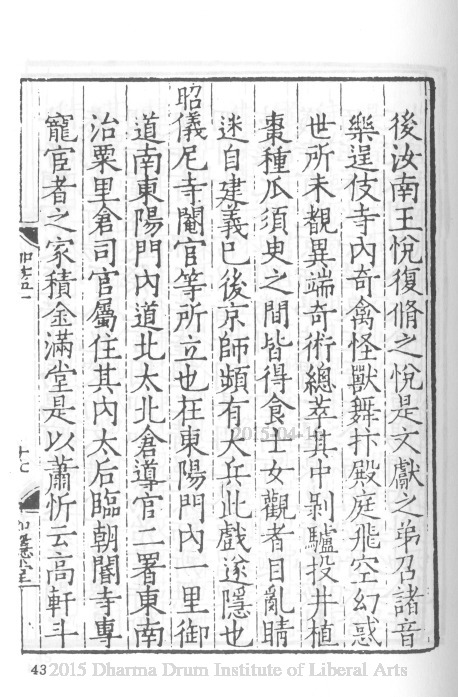 後汝南王悅復脩之悅是文獻之弟召諸音
樂逞伎寺內奇禽怪獸舞抃殿庭飛空幻惑
世所未覩異端奇術總萃其中剝驢投井植
棗種瓜須臾之間皆得食士女觀者目亂睛
迷自建義已後京師頻有大兵此戲遂隱也
昭儀尼寺閹官等所立也在東陽門內一里御
道南東陽門內道北太北倉導官二署東南
治粟里倉司官屬住其內太后臨朝閽寺專
寵宦者之家積金滿堂是以蕭忻云高軒斗
43 2015 Dharma Drum Institute of Liberal Arts